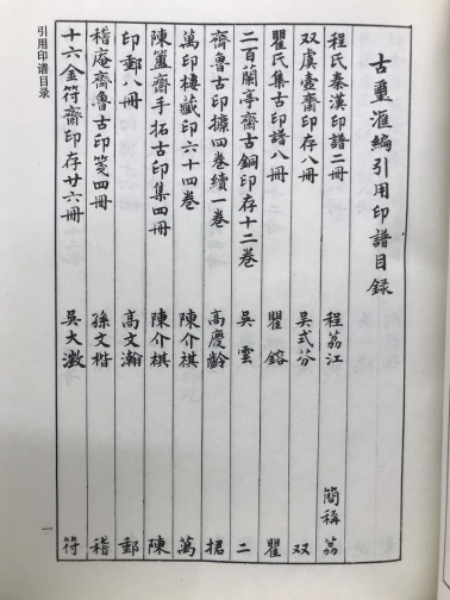 古璽滙編引用印譜目録
程氏秦漢印譜二冊 程荔江 簡稱 荔
双虞壺齋印存八冊 吴式芬 双
瞿氏集古印譜八冊 瞿鎔 瞿
二百蘭亭齋古銅印存十二巻 吴雲 二
齊魯古印攈四巻續一巻 高慶齡 捃
萬印樓藏印六十四巻 陳介祺 萬
陳簠齋手拓古印集四冊 陳介祺 陳
印郵八冊 高文瀚 郵
稽庵齊魯古印箋四冊 孫文楷 稽
十六金符齋印存廿六冊 吴大澂 符
引用印谱目录
一